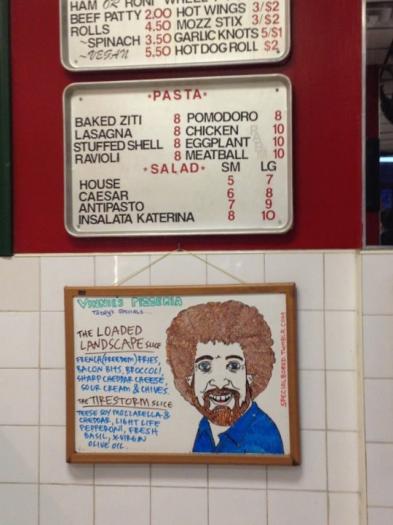 HAM OR RONI WHEEL
BEEF PATTY 2.00 HOT WINGS 3/$2
ROLLS 4.50 MOZZ STIX 3/$2
~SPINACH 3.50 GARLIC KNOTS 5/$1
~VEGAN 5.50 HOT DOG ROLL $2
•PASTA•
BAKED ZITI 8 POMODORO 8
LASAGNA 8 CHICKEN 10
STUFFED SHELL 8 EGGPLANT 10
RAVIOLI 8 MEATBALL 10
•SALAD• SM LG
HOUSE 5 7
CAESAR 6 8
ANTIPASTO 7 9
INSALATA KATERINA 8 10
VINNIE'S PIZZERIA
TODAY'S SPECIALS...
THE LOADED
LANDSCAPE SLICE
FRENCH (FREEDOM) FRIES,
BACON BITS, BROCCOLI,
SHARP CHEDDAR CHEESE,
SOUR CREAM & CHIVES.
THE TIRESTORM SLICE
TEESE SOY MOZZARELLA &
CHEDDAR, LIGHT LIFE
PEPPERONI, FRESH
BASIL, X-VIRGIN
OLIVE OIL.
SPECIALBOARD.TUMBLR.COM